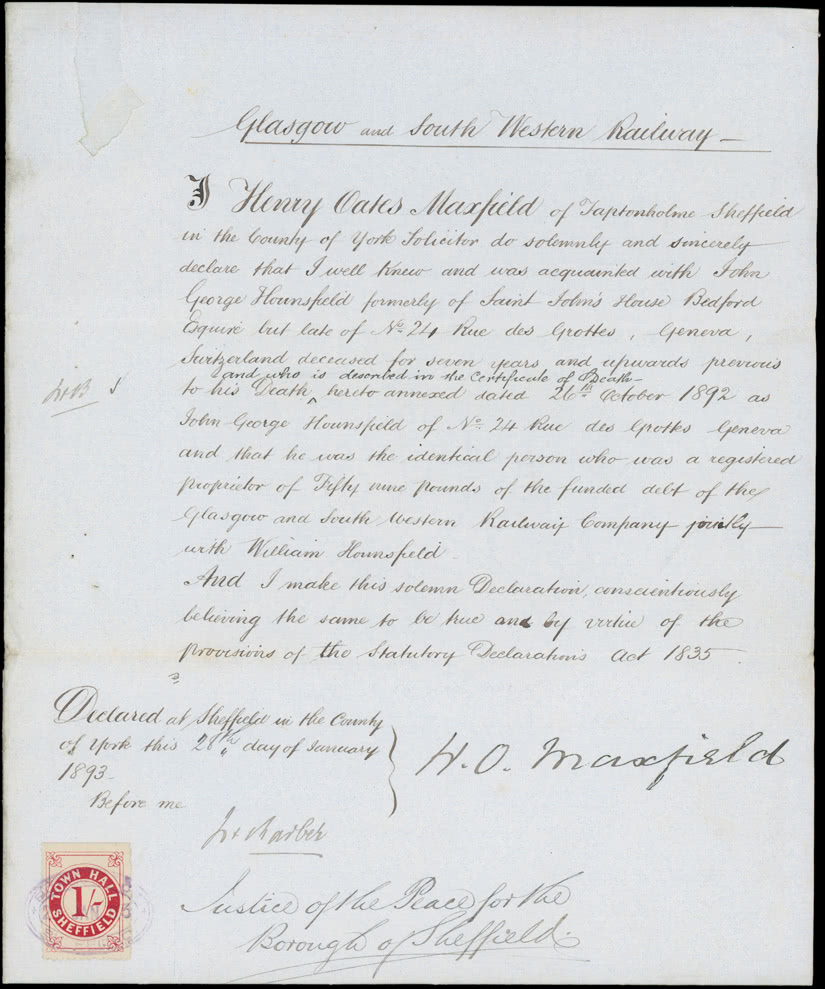 Glasgow and South Western Railway —
I Henry Oates Maxfield of Taptonholme Sheffield
in the County of York Solicitor do solemnly and sincerely
declare that I well knew and was acquainted with John
George Hounsfield formerly of Saint John's House Bedford
Esquire but late of No. 24 Rue des Grottes, Geneva,
Switzerland deceased for seven years and upwards previous
and who is described in the Certificate of Death
to his Death ‸ hereto annexed dated 26th October 1892 as
John George Hounsfield of No. 24 Rue des Grottes Geneva
and that he was the identical person who was a registered
proprietor of Fifty nine pounds of the funded debt of the
Glasgow and South Western Railway Company jointly
with William Hounsfield.
And I make this solemn Declaration, conscientiously
believing the same to be true and by virtue of the
provisions of the Statutory Declarations Act 1835.
Declared at Sheffield in the County
of York this 28th day of January
1893
Before me
H. O. Maxfield
Barber
Justice of the Peace for the
Borough of Sheffield.
TOWN HALL
1/-
SHEFFIELD